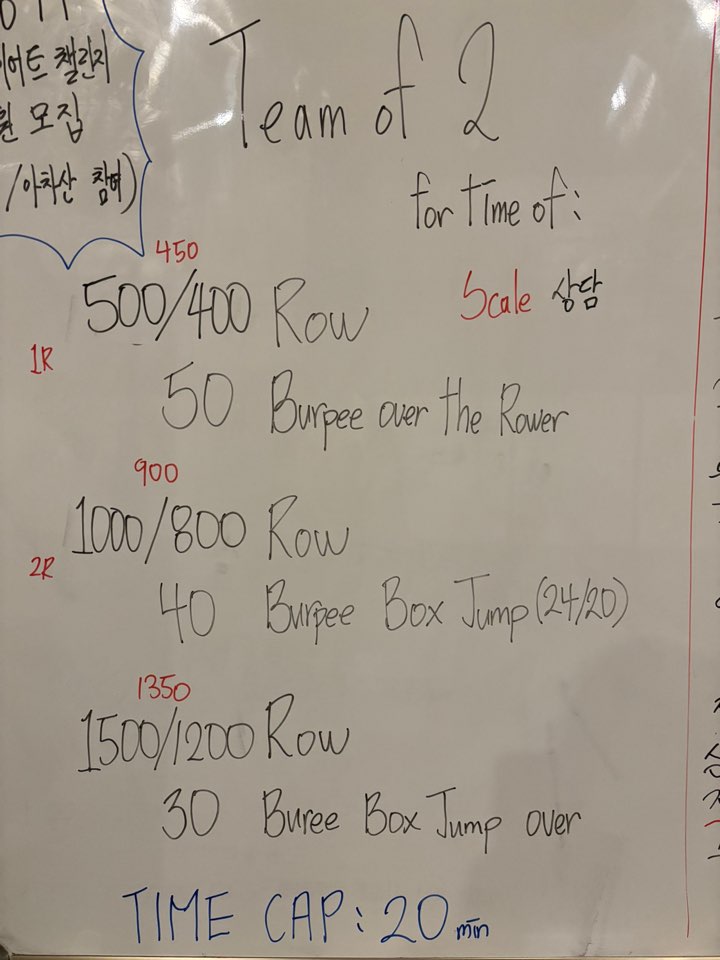 챌린지
모집
/아차산 참여)
Team of 2
for time of:
450
500/400 Row
Scale 상담
1R
50 Burpee over the Rower
900
1000/800 Row
2R
40 Burpee Box Jump (24/20)
1350
1500/1200 Row
30 Buree Box Jump over
TIME CAP: 20 min